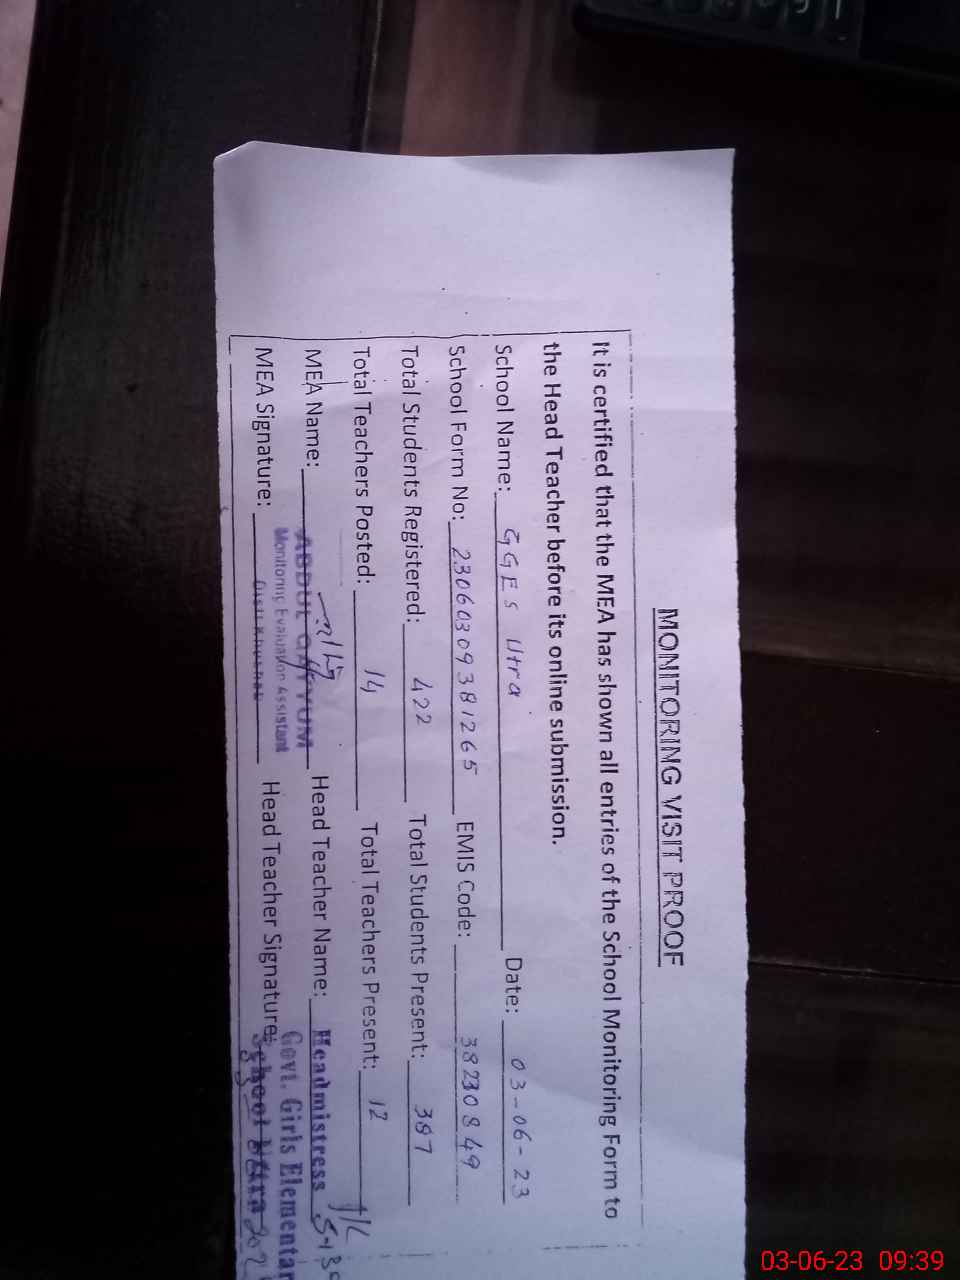 MONITORING VISIT PROOF
It is certified that the MEA has shown all entries of the School Monitoring Form to
the Head Teacher before its online submission.
School Name: GGES Utra Date: 03-06-23
School Form No: 23060309381265 EMIS Code: 38230849
Total Students Registered: 422 Total Students Present: 387
Total Teachers Posted: 14 Total Teachers Present: 12
MEA Name: ABDUL QAYYUM Head Teacher Name: Headmistress
Monitoring Evaluation Assistant Govt. Girls Elementar
MEA Signature: Distt Khushab Head Teacher Signature: School Uttra
03-06-23 09:39